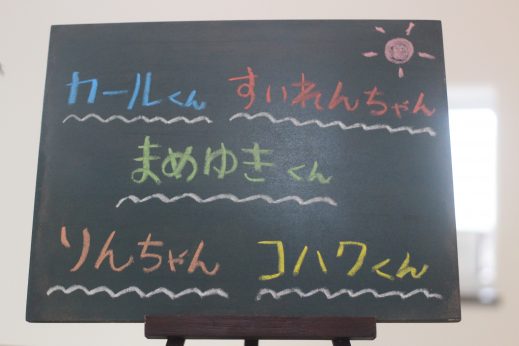 カールくん すいれんちゃん
まめゆきくん
りんちゃん コハクくん